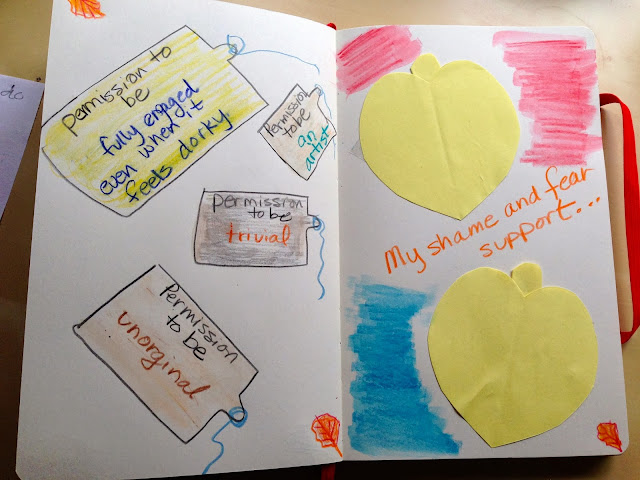 permission to
be
fully engaged
even when it
feels dorky
Permission
to be
an
artist
permission
to be
trivial
Permission
to be
unorginal
My shame and fear
support...